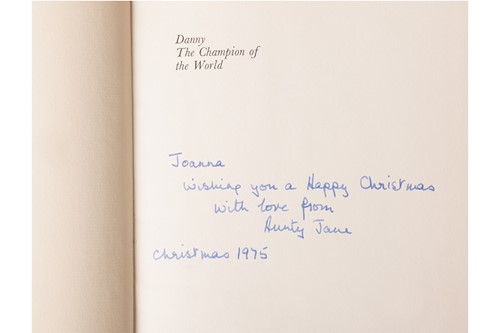 Danny
The Champion of
the World
Joanna
Wishing you a Happy Christmas
With love from
Aunty Jane
Christmas 1975